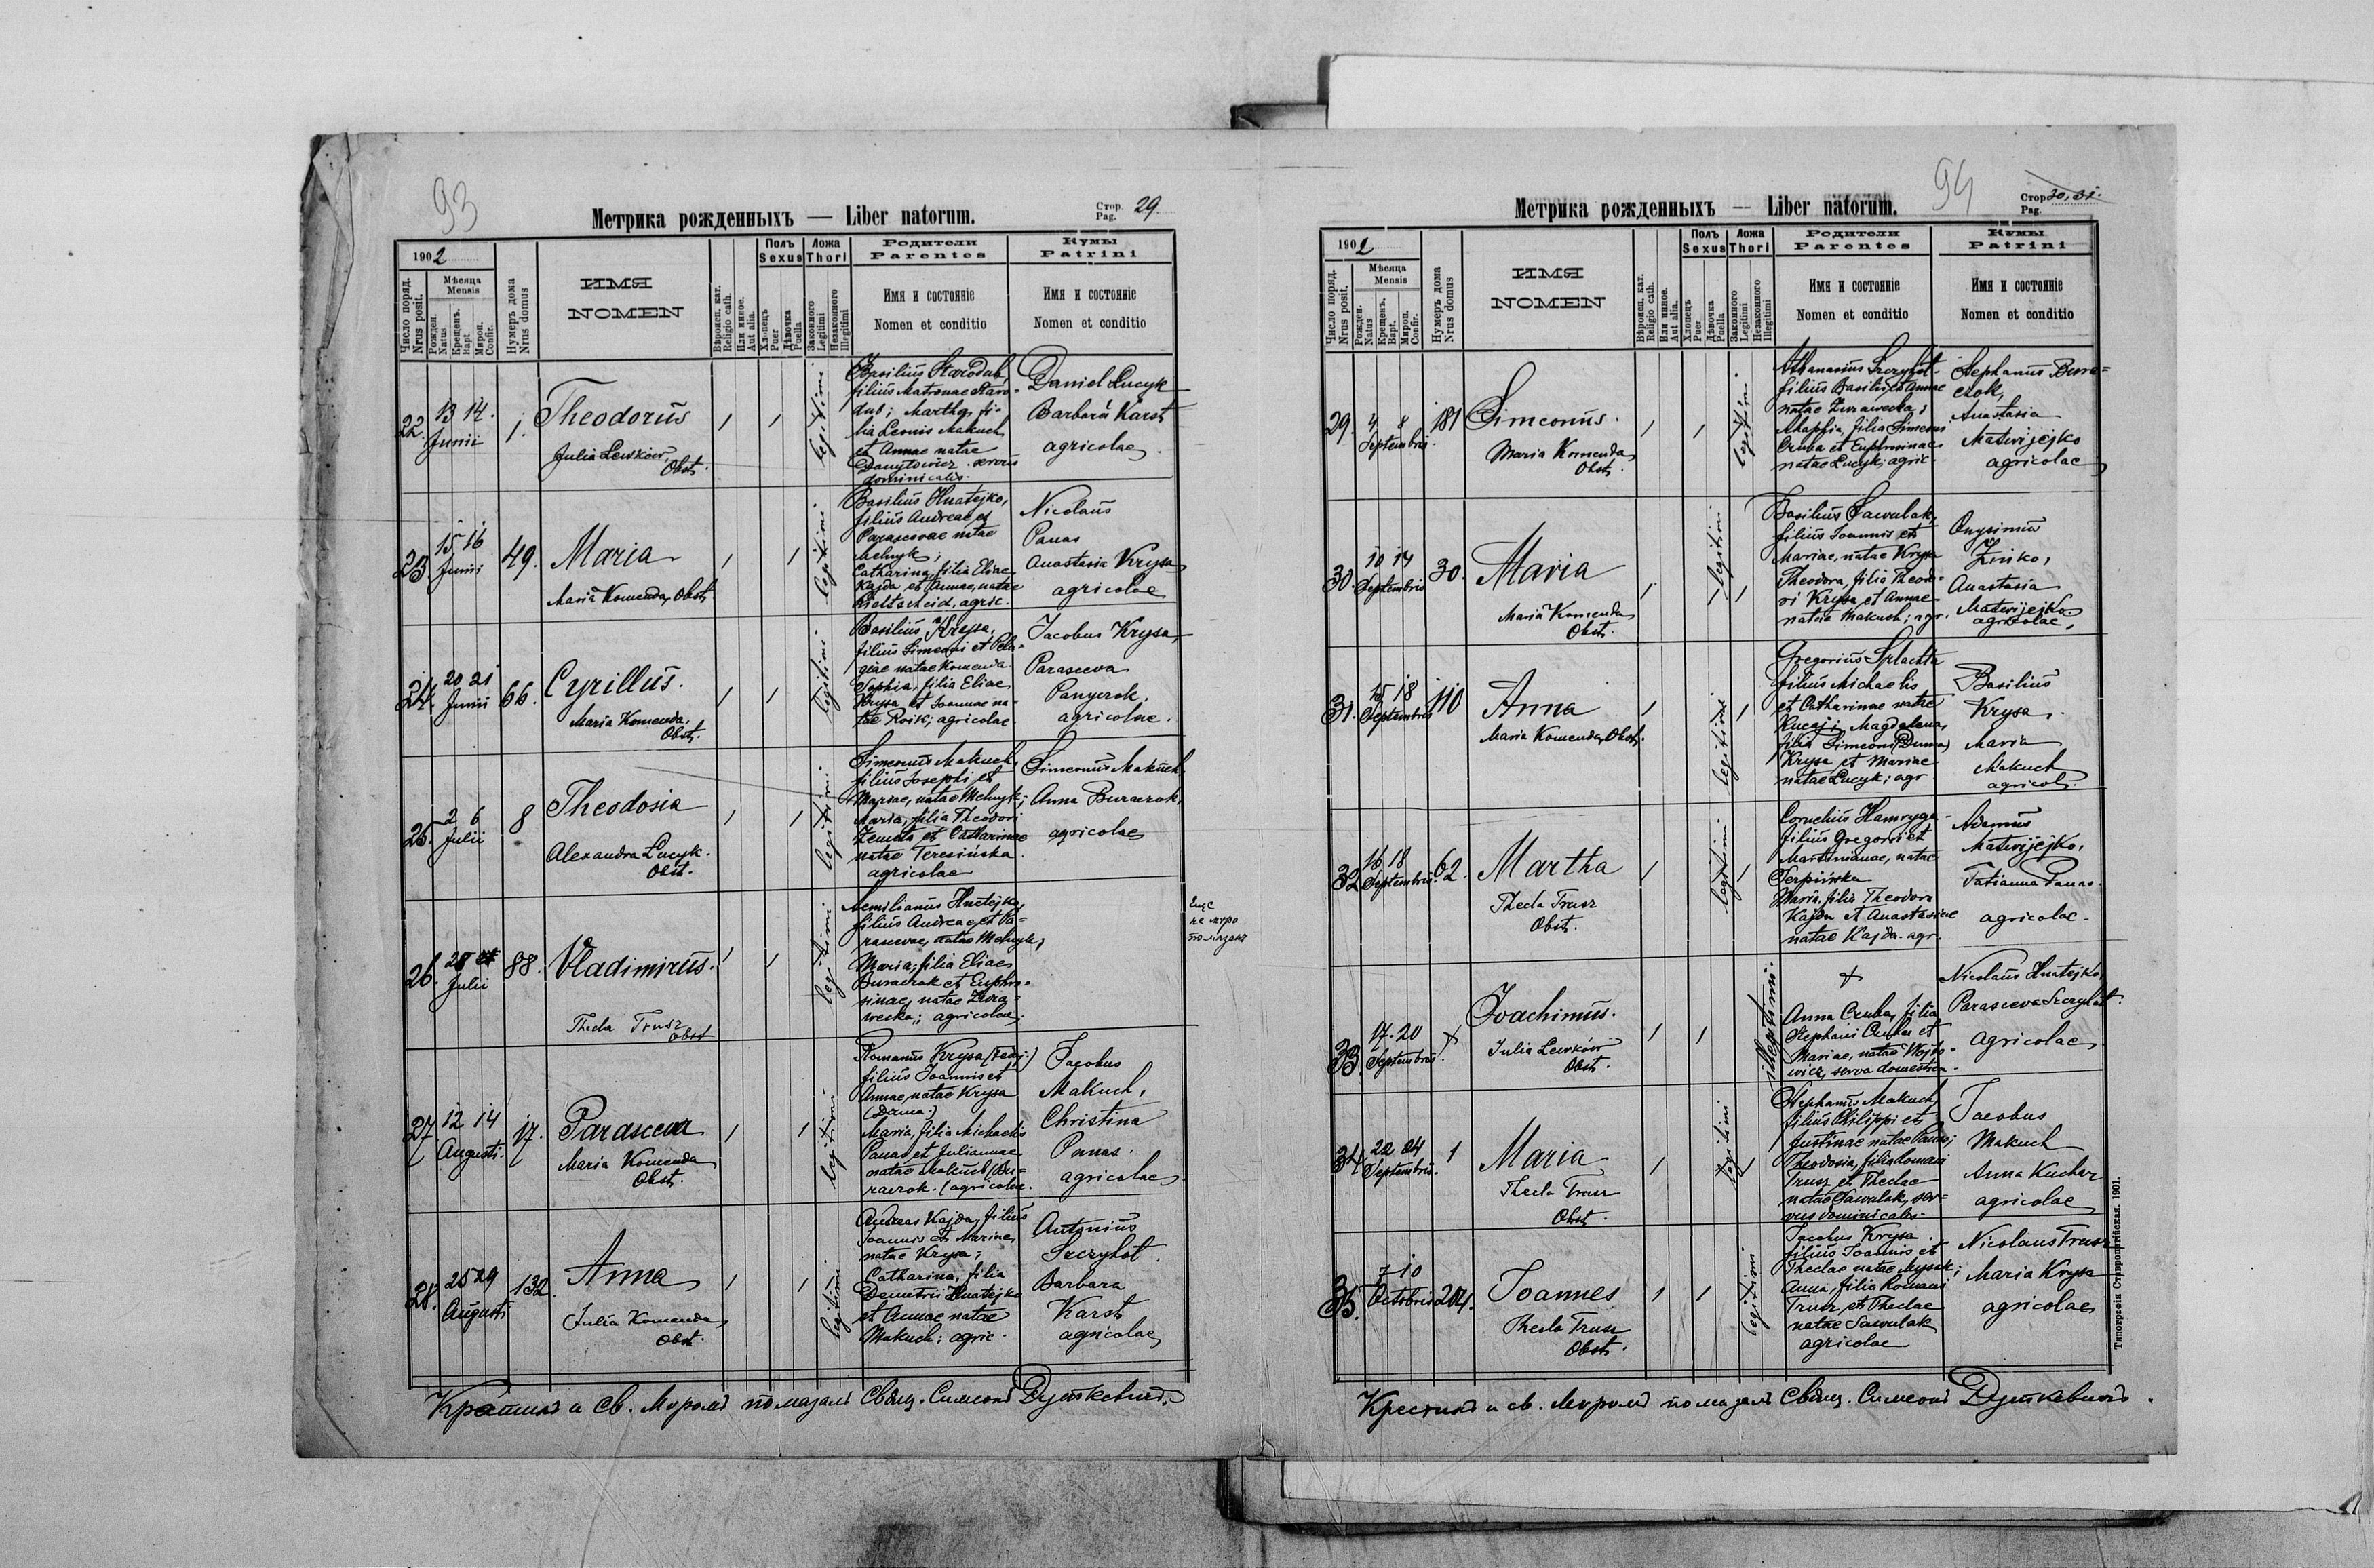 93
Метрика рожденныхъ — Liber natorum.
Стор. Pag. 29
1902
Число поряд. Nrus posit.
Мѣсяца Mensis
Рожден. Natus
Крещенъ. Bapt.
Мироп. Confir.
Нумеръ дома Nrus domus
ИМЯ
NOMEN
Вѣроисп. кат. Religio cath.
Или инное. Aut alia.
Полъ Sexus
Хлопецъ Puer
Дѣвочка Puella
Ложа Thori
Законного Legitimi
Незаконного Illegitimi
Родители
Parentes
Имя и состояніе
Nomen et conditio
Кумы
Patrini
Имя и состояніе
Nomen et conditio
22. 13 14. Junii 1.
Theodorus
Julia Lewków, Obst.
legitimi
Basilius Starodub,
filius Matronae Staro-
dub; Martha, fi-
lia Leonis Makuch
et Annae natae
servus
dominicalis.
Daniel Lucyk
Barbara Karst
agricolae.
23. 15 16 Junii 49.
Maria
Maria Komenda, Obst.
legitimi
Basilius Hnatejko,
filius Andreae et
Parascevae natae
Melnyk;
Catharina, filia Eliae
Kajda et Annae, natae
agric.
Nicolaus
Panas
Anastasia Krysa
agricolae
24. 20 21 Junii 66.
Cyrillus.
Maria Komenda,
Obst.
legitimi
Basilius Krysa,
filius Simeoni et Pela-
giae natae Komenda
Sophia, filia Eliae
Krysa et Joannae na-
tae Roik; agricolae
Jacobus Krysa,
Parasceva
agricolae.
25. 2 6 Julii 8
Theodosia
Alexandra Lucyk.
Obst.
legitimi
Simeonus Makuch,
filius Josephi et
Mariae, natae Melnyk;
Maria, filia Theodori
et Catharinae
natae Teresińska
agricolae
Simeonus Makuch,
Anna Buraczok,
agricolae
26. 28 Julii 88.
Vladimirus.
Thecla Trusz
Obst
legitimi
Aemilianus Hnatejko,
filius Andreae et Pa-
rascevae, natae Melnyk;
Maria, filia Eliae
Buraczok et Euphro-
sinae, natae Żura-
wecka; agricolae.
Еще
не муро
помазанъ
27 12 14 Augusti. 17.
Parasceva
Maria Komenda
Obst.
legitimi
Romanus Krysa
filius Joannis et
Annae, natae Krysa
(Duma)
Maria, filia Michaelis
Panas et Julianae
natae Makuch (Bu-
raczok.) agricolae.
Jacobus
Makuch,
Christina
Panas.
agricolae
28. 25 29 Augusti 132.
Anna
Julia Komenda,
Obst.
legitimi
Andreas Kajda, filius
Joannis et Mariae,
natae Krysa;
Catharina, filia
Demetrii Hnatejko
et Annae natae
Makuch; agric.
Antonius
Szczyhot.
Barbara
Karst
agricolae
Крестилъ и Св. Муромъ помазалъ Свящ. Симеонъ Дуткевичъ.
94
Метрика рожденныхъ — Liber natorum.
Стор. Pag. 30, 31.
1902
Число поряд. Nrus posit.
Мѣсяца Mensis
Рожден. Natus
Крещенъ. Bapt.
Мироп. Confir.
Нумеръ дома Nrus domus
ИМЯ
NOMEN
Вѣроисп. кат. Religio cath.
Или инное. Aut alia.
Полъ Sexus
Хлопецъ Puer
Дѣвочка Puella
Ложа Thori
Законного Legitimi
Незаконного Illegitimi
Родители
Parentes
Имя и состояніе
Nomen et conditio
Кумы
Patrini
Имя и состояніе
Nomen et conditio
29. 4 8 Septembris. 181
Simeonus.
Maria Komenda
Obst.
legitimi
Athanasius Szczyhot
filius Basilii et Annae
natae Żurawecka;
Ahaphia, filia Simeoni
Cruba et Euphrosinae
natae Lucyk; agric.
Stephanus Bura-
czok,
Anastasia
Matwijejko
agricolae
30. 10 14 Septembris 30.
Maria
Maria Komenda
Obst.
legitimi
Basilius Sawulak,
filius Joannis et
Mariae, natae Krysa
Theodora, filia Theodo-
ri Krysa et Annae
natae Makuch; agr.
Onysimus
Zinko,
Anastasia
Matwijejko
agricolae,
31. 15 18 Septembris 110
Anna
Maria Komenda, Obst.
legitimi
Gregorius Splachta
filius Michaelis
et Catharinae natae
Magdalena,
filia Simeoni (Duma)
Krysa et Mariae
natae Lucyk; agr.
Basilius
Krysa,
Maria
Makuch
agricol.
32 16 18 Septembris 62.
Martha
Thecla Trusz
Obst.
legitimi
Cornelius Hawryga
filius Gregorii et
Martinianae, natae
Serpińska
Maria, filia Theodori
Kajda et Anastasiae
natae Kajda. agr.
Adamus
Matwijejko,
Tatianna Panas.
agricolae.
33. 17. 20 Septembris. +
Joachimus.
Julia Lewków
Obst.
illegitimi.
+
Anna Cruba, filia
Stephani Cruba et
Mariae, natae Wojto-
wicz, serva domestica.
Nicolaus Hnatejko,
Parasceva Szczyhot.
agricolae
34. 22 24 Septembris. 1
Maria
Thecla Trusz
Obst.
legitimi
Stephanus Makuch,
filius Philippi et
Justinae natae Panas;
Theodosia, filia Romani
Trusz et Theclae
natae Sawulak, ser-
vus dominicalis.
Jacobus
Makuch
Anna Kuchar
agricolae
35. 7 10 Octobris 204.
Joannes
Thecla Trusz
Obst.
legitimi
Jacobus Krysa.
filius Joannis et
Theclae natae Mysak;
Anna, filia Romani
Trusz et Theclae
natae Sawulak
agricolae
Nicolaus Trusz
Maria Krysa
agricolae
Типографія Ставропигійская. 1901.
Крестилъ и св. Муромъ помазалъ Свящ. Симеонъ Дуткевичъ.